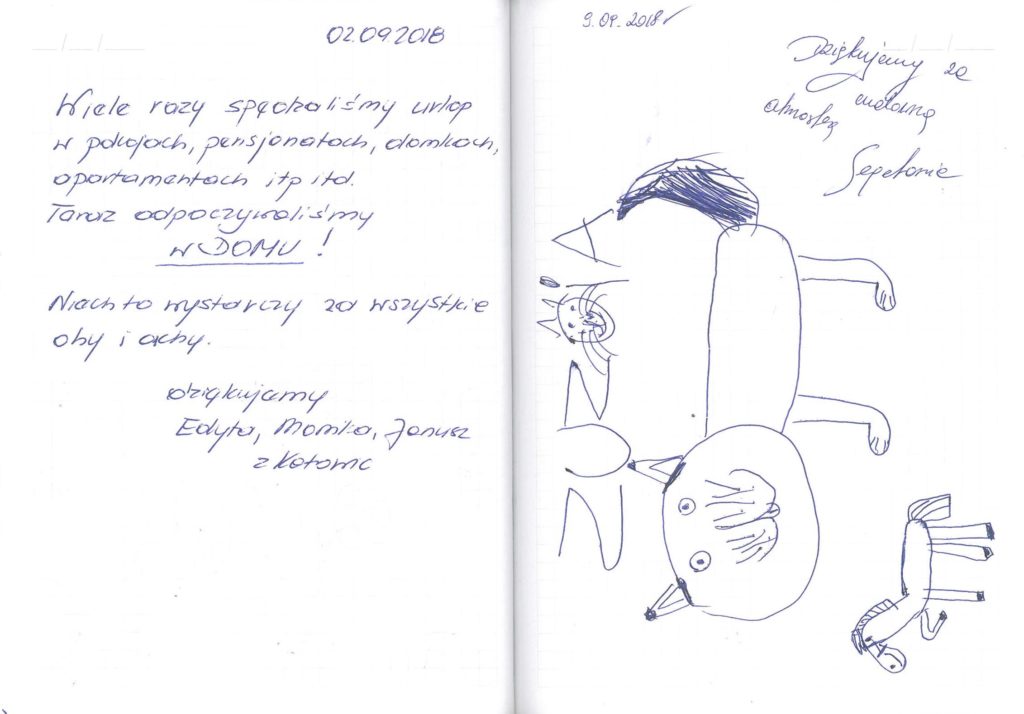 02.09.2018
Wiele razy spędzaliśmy urlop
w pokojach, pensjonatach, domkach,
apartamentach itp itd.
Teraz odpoczywaliśmy
w DOMU!
Niech to wystarczy za wszystkie
ohy i achy.
dziękujemy
Edyta, Monika, Janusz
z Katowic
9.09.2018r
Dziękujemy za
cudowną
atmosferę